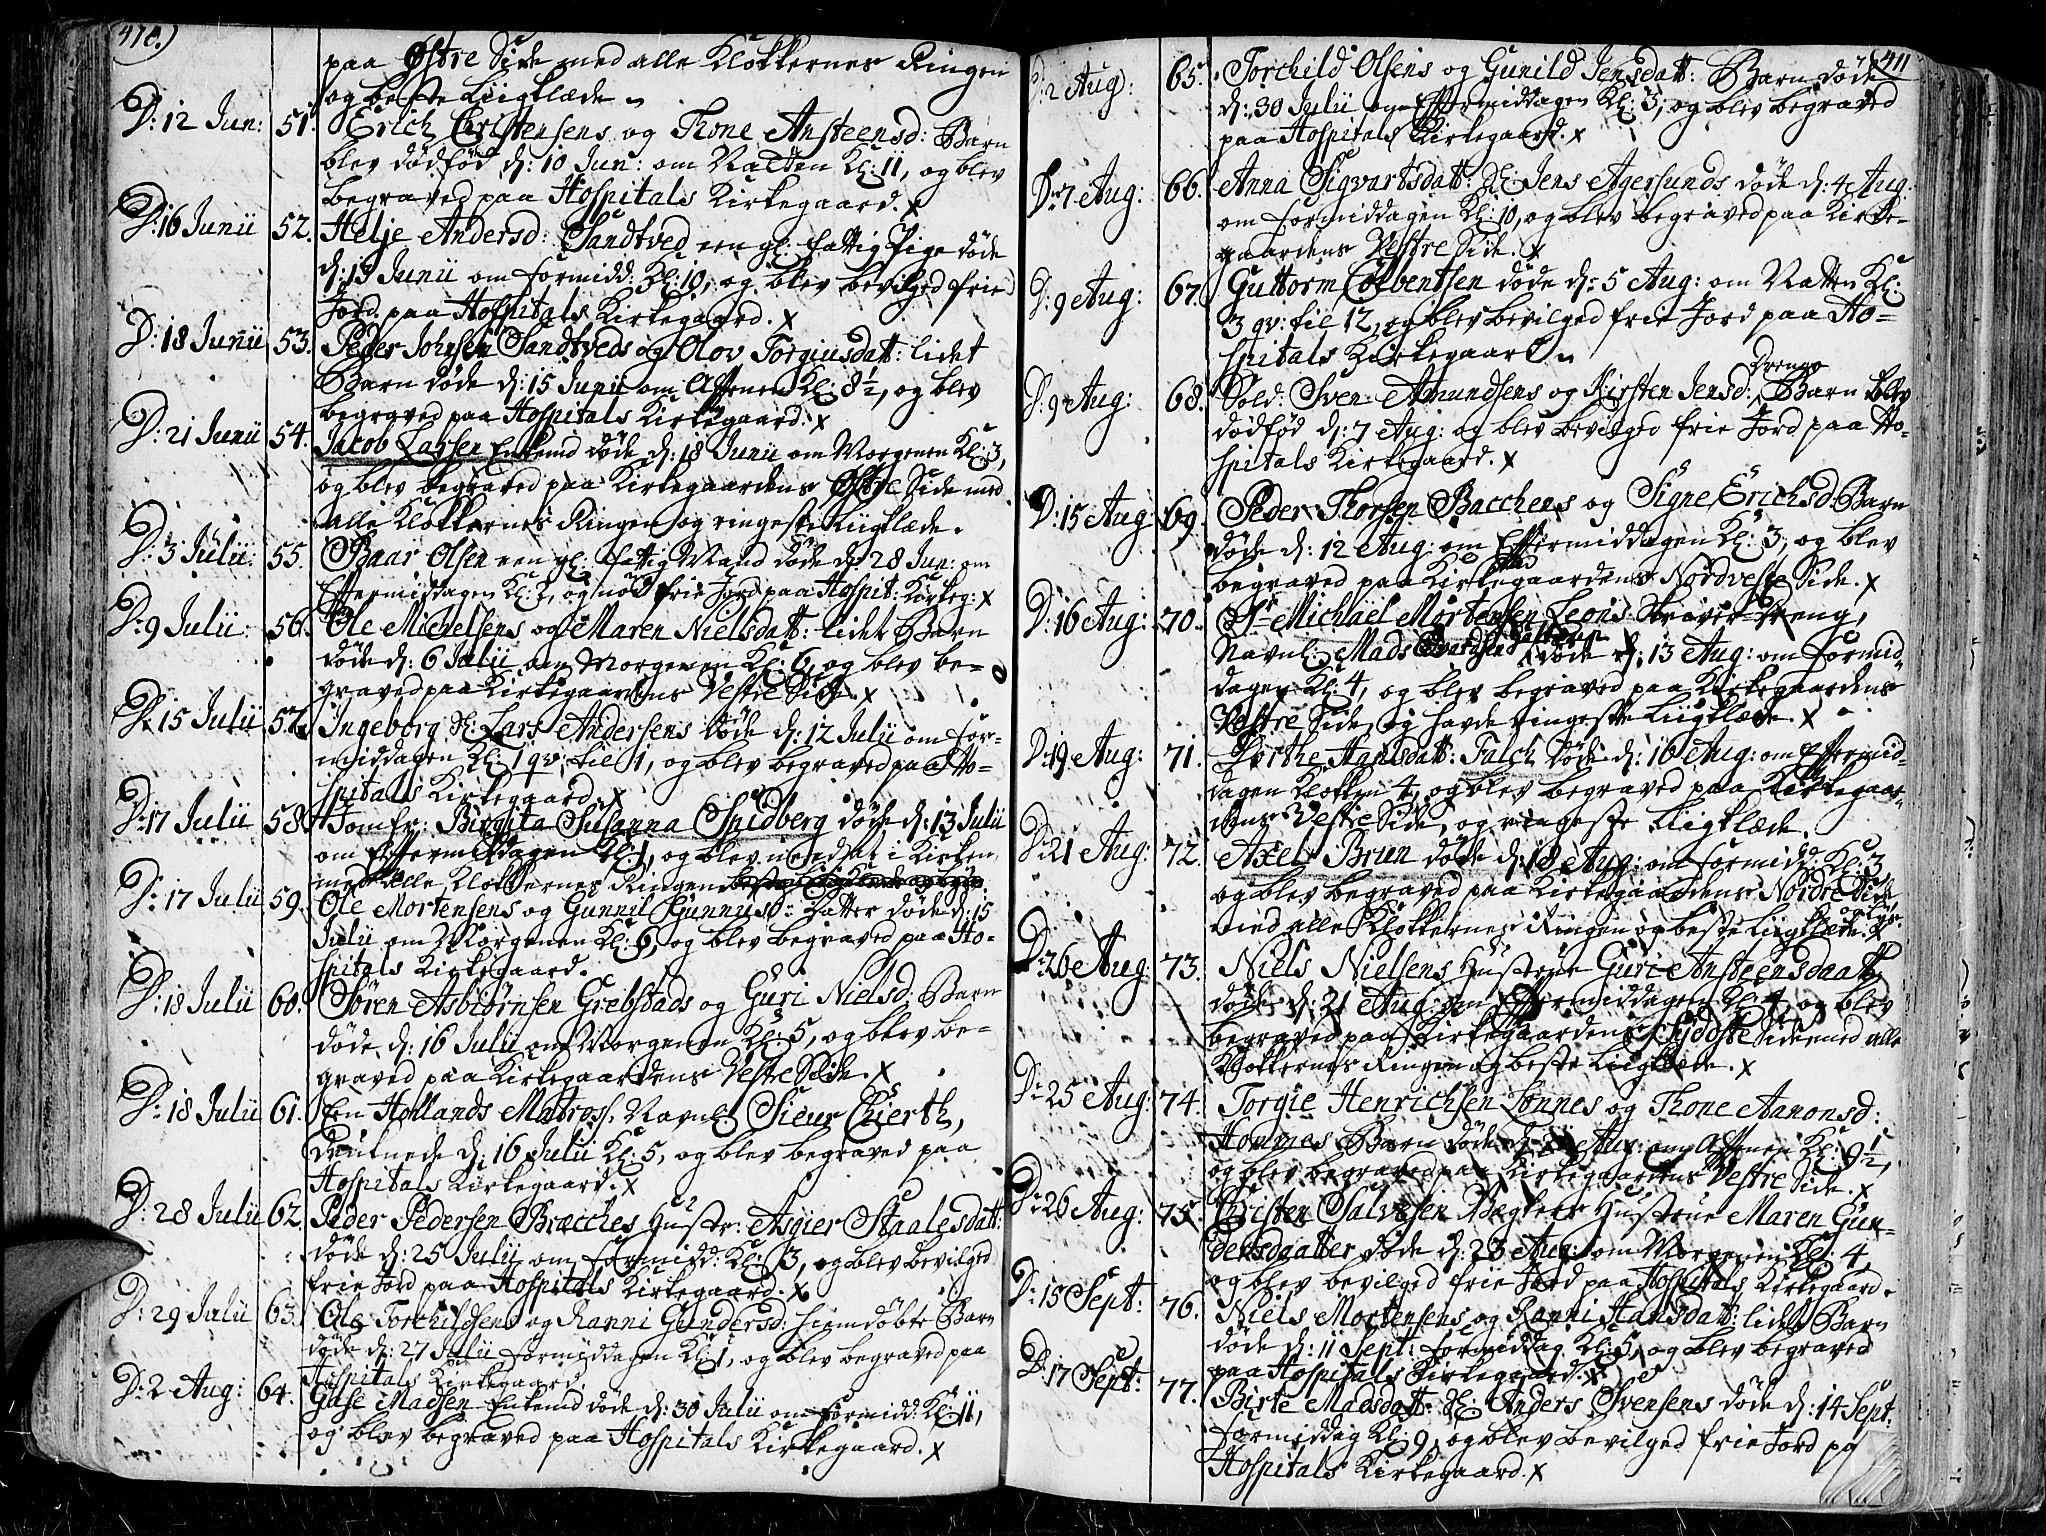 410.)
paa Østre Side med alle Klokkernes Ringen
og beste Liigklæde.
D: 12 Jun: 51. Erich Christensens og Thone Ansteensd: Barn
blev dødfød d: 10 Jun: om Natten Kl: 11, og blev
begraved paa Hospitals Kirkegaard. x
D: 16 Junii 52. Helje Andersd: Sandtved een gl: fattig Pige døde
d: 13 Junii om formidd: Kl: 10, og blev bevilged frie
Jord paa Hospitals Kirkegaard. x
D: 18 Junii 53. Peder Johnsen Sandtveds og Olov Torgiusdatt: lidet
Barn døde d: 15 Junii om Aftenen Kl: 8½, og blev
begraved paa Hospitals Kirkegaard. x
D: 21 Junii 54. Jacob Lassen Enkemd døde d: 18 Junii om Morgenen Kl: 3,
og blev begraved paa Kirkegaardens Østre Side med
alle Klokkernes Ringen og ringeste Liigklæde.
D: 3 Julii: 55. Baar Olsen een gl: fattig Mand døde d: 28 Jun: om
Eftermiddagen Kl: 2, og nød frie Jord paa Hospit: Kirkeg: x
D: 9 Julii: 56. Ole Michelsens og Maren Nielsdatt: lidet Barn
døde d: 6 Julii om Morgenen Kl: 6, og blev be=
graved paa Kirkegaardens Vestre Side. x
D: 15 Julii 57. Ingeborg Sl: Lars Andersens døde d: 12 Julii om for=
middagen Kl: 1 qv: til 1, og blev begraved paa Ho=
spitals Kirkegaard. x
D: 17 Julii 58. Jomfr: Birgita Susanna Spidberg døde d: 13 Julii
om Eftermiddagen Kl: 1, og blev nendsat i Kirken
med alle Klokkernes Ringen
D: 17 Julii 59. Ole Mortensens og Gunnil Gunnusd: Datter døde d: 15
Julii om Morgenen Kl: 6, og blev begraved paa Ho=
spitals Kirkegaard.
D: 18 Julii 60. Søren Asbiørnsen Grebstads og Guri Nielsd: Barn
døde d: 16 Julii om Morgenen Kl: 5, og blev be=
graved paa Kirkegaardens Vestre Side. x
D: 18 Julii 61. Een Hollands Matros, Navnl: Sieur Cierth,
druknede d: 16 Julii Kl: 5, og blev begraved paa
Hospitals Kirkegaard. x
D: 28 Julii 62. Peder Pedersen Bræcches Hustr: Asgier Staalesdatt:
døde d: 25 Julii om formidd: Kl: 3, og blev bevilged
frie Jord paa Hospitals Kirkegaard. x
D: 29 Julii 63. Ole Torchildsens og Ranni Gundersd: hiemdøbte Barn
døde d: 27 Julii formiddagen Kl: 1, og blev begraved paa
Hospitals Kirkegaard.
D: 2 Aug: 64. Gase Madsen Enkemd døde d: 30 Julii om formidd: Kl: 11,
og blev begraved paa Hospitals Kirkegaard. x
411
D: 2 Aug: 65. Torchild Olsens og Gunild Jensdatt: Barn døde
d: 30 Julii om Eftermiddagen Kl: 3, og blev begraved
paa Hospitals Kirkegaard. x
D: 7 Aug: 66. Anna Sigvartsdatt: Sl: Jens Agersunds døde d: 4 Aug.
om formiddagen Kl: 10, og blev begraved paa Kirke=
gaardens Vestre Side. x
D: 9 Aug: 67. Guttorm Colbentsen døde d: 5 Aug: om Natten Kl:
3 qv: til 12, og blev bevilged frie Jord paa Ho=
spitals Kirkegaard
D: 9 Aug: 68. Sold: Sven Amundsens og Kirsten Jensd: Drenge Barn blev
dødfød d: 7 Aug: og blev bevilged frie Jord paa Ho=
spitals Kirkegaard. x
D: 15 Aug: 69. Peder Thorsen Bacchens og Signe Erichsd: Barn
døde d: 12 Aug: om Eftermiddagen Kl: 3, og blev
begraved paa Kirkegaardens Nordveste Side. x
D: 16 Aug: 70. Sr Michael Mortensen Leons Skriver-Dreng,
Navnl: Mads døde d: 13 Aug: om formid=
dagen Kl: 4, og blev begraved paa Kirkegaardens
Vestre Side, og havde ringeste Liigklæde. x
D: 19 Aug: 71. Dorthe Hansdatt: Falch døde d: 16 Aug: om Eftermid=
dagen Klokken 4, og blev begraved paa Kirkegaar=
dens Vestre Side, og ringeste Liigklæde.
D: 21 Aug: 72. Axel Brun døde d: 18 Aug: om formidd: Kl: 3,
og blev begraved paa Kirkegaardens Nordre Side
med alle Klokkernes Ringen og beste Liigklæde. x
D: 26 Aug: 73. Niels Nielsens Hustrue Guri Ansteensdaatt:
døde d: 21 Aug: om Eftermiddagen Kl: 4, og blev
begraved paa Kirkegaardens Sydoste Side med alle
Klokkernes Ringen og beste Liigklæde. x
D: 25 Aug: 74. Torgie Henrichsen Lønnes og Thone Aanonsd:
Hommes Barn døde d: Aug: om Aftenen Kl: 9½,
og blev begraved paa Kirkegaardens Vestre Side. x
D: 26 Aug: 75. Christen Salvesen Hustrue Maren Gun=
dersdaatter døde d: 23 Aug: om Morgenen Kl: 4,
og blev bevilged frie Jord paa Hospitals Kirkegaard.
D: 15 Sept: 76. Niels Mortensens og Ranni Hansdatt: lidet Barn
døde d: 11 Sept: formiddag Kl: 5, og blev begraved
paa Hospitals Kirkegaard. x
D: 17 Sept: 77. Birte Madsdatt: Sl: Anders Svensens døde d: 14 Sept:
formiddag Kl: 9, og blev bevilged frie Jord pa
Hospitals Kirkegaard. x